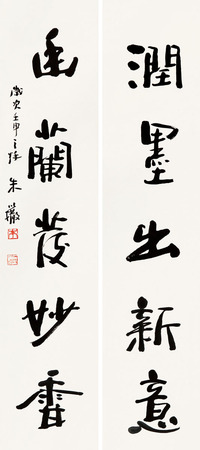 潤墨出新意
幽蘭發妙香
歲次壬申之秋 朱